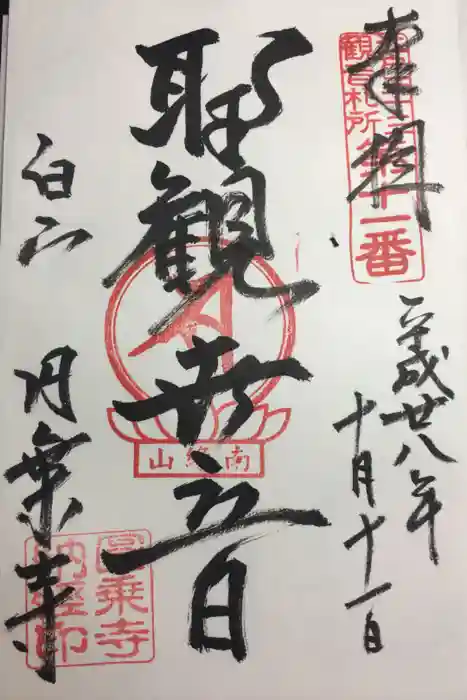 奉拝
江戸三十三
観音札所第十一番
平成廿八年
十月十一日
聖観世音
南縁山
白山
円乗寺
圓乗寺
納経印